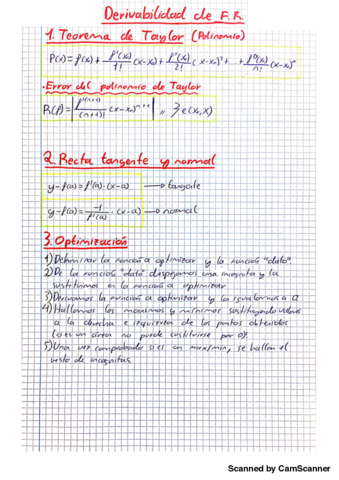 Derivabilidad de F.R.
1. Teorema de Taylor (Polinomio)
P(x) = f(x₀) + f'(x₀)/1! (x-x₀) + f''(x₀)/2! (x-x₀)² + ... + fⁿ(x₀)/n! (x-x₀)ⁿ
· Error del polinomio de Taylor
(x-x₀)ⁿ⁺¹
2. Recta tangente y normal
y-f(a) = f'(a)·(x-a) → tangente
y-f(a) = -1/f'(a) · (x-a) → normal
3. Optimización
1) Determinar la función a optimizar y la función "dato".
2) De la función "dato" despejamos una incógnita y la
sustituimos en la función a optimizar
3) Derivamos la función a optimizar y la igualamos a 0
4) Hallamos los máximos y mínimos sustituyendo valores
a la derecha e izquierda de los puntos obtenidos
(si es un área no puede sustituirse por 0).
5) Una vez comprobado si es un max/min, se hallan el
resto de incógnitas.
Scanned by CamScanner